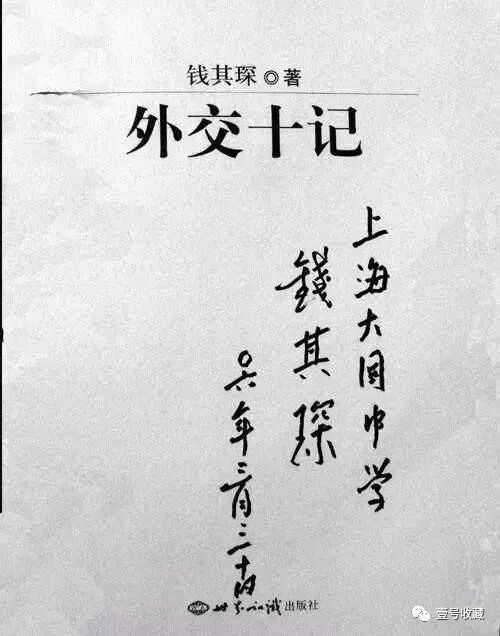 钱其琛◎著
外交十记
上海大同中学
錢其琛
〇六年三月三十日
世界知识出版社
壹号收藏